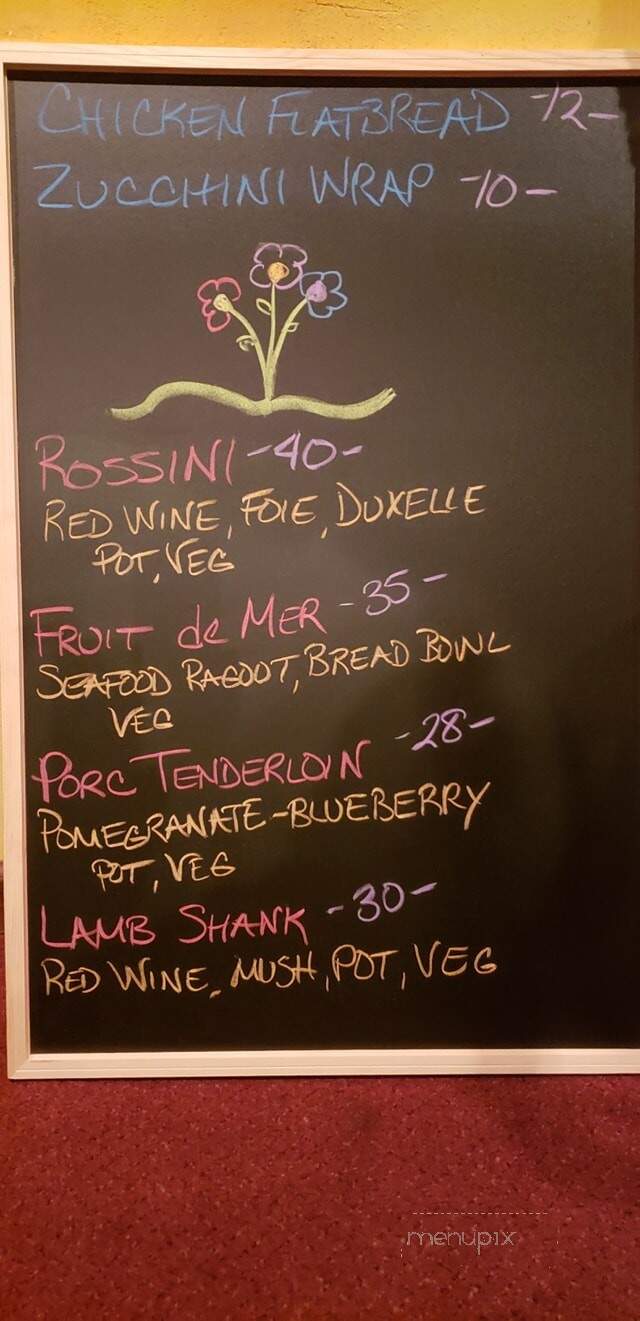 CHICKEN FLATBREAD -12-
ZUCCHINI WRAP -10-
ROSSINI -40-
RED WINE, FOIE, DUXELLE
POT, VEG
FRUIT de MER -35-
SEAFOOD RAGOOT, BREAD BOWL
VEG
PORC TENDERLOIN -28-
POMEGRANATE-BLUEBERRY
POT, VEG
LAMB SHANK -30-
RED WINE, MUSH, POT, VEG
menupix